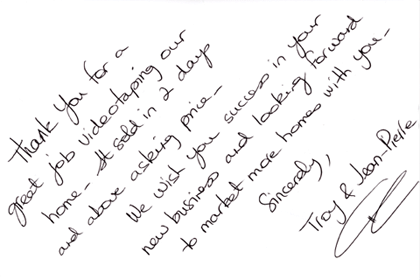 Thank you for a
great job videotaping our
home- It sold in 2 days
and above asking price-
We wish you success in your
new business and looking forward
to market more homes with you-
Sincerely,
Troy & Jean-Pierre